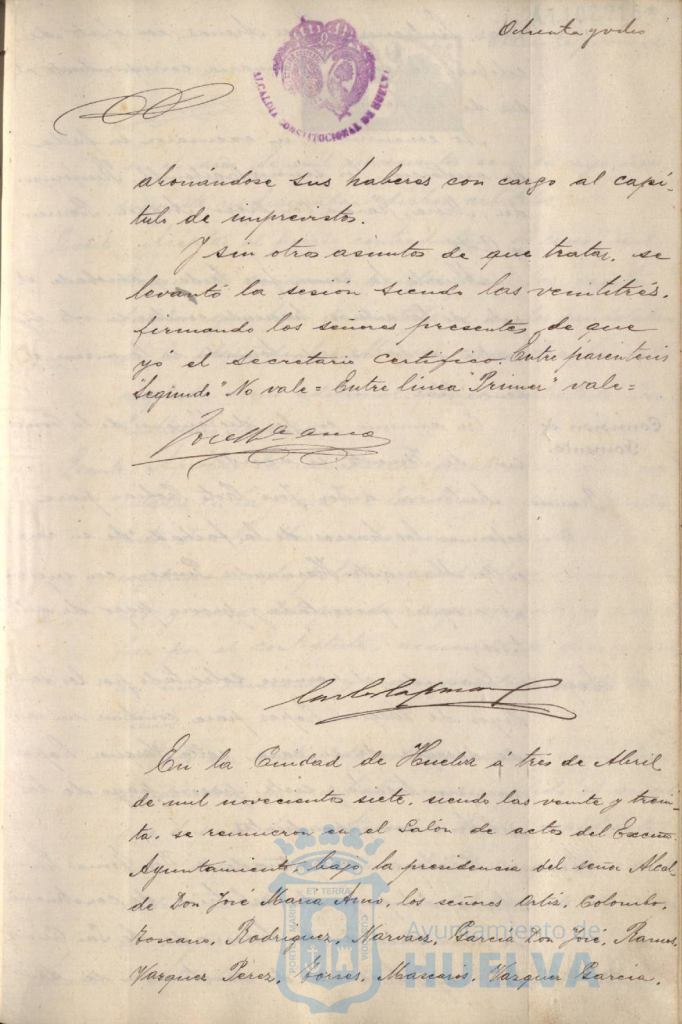 Ochenta y dos
ALCALDIA CONSTITUCIONAL DE HUELVA
abonándose sus haberes con cargo al capí-
tulo de imprevistos.
Y sin otros asuntos de que tratar, se
levantó la sesión siendo las veintitrés,
firmando los señores presentes, de que
yó el Secretario certifico. Entre parentesis
"Segundo" No vale = Entre linea "Primer" vale =
José Mª Amo
En la Ciudad de Huelva á tres de Abril
de mil novecientos siete, siendo las veinte y trein-
ta, se reunieron en el Salón de actos del Excmo.
Ayuntamiento, bajo la presidencia del señor Alcal-
de Don José Maria Amo, los señores Ortiz, Colombo,
Toscano, Rodriguez, Narvaez, Garcia Don José, Ramos,
Vazquez Perez, Torres, Mascaros, Vazquez Garcia,
PORTUS MARIS ET TERRAE CUSTODIA
Ayuntamiento de
HUELVA